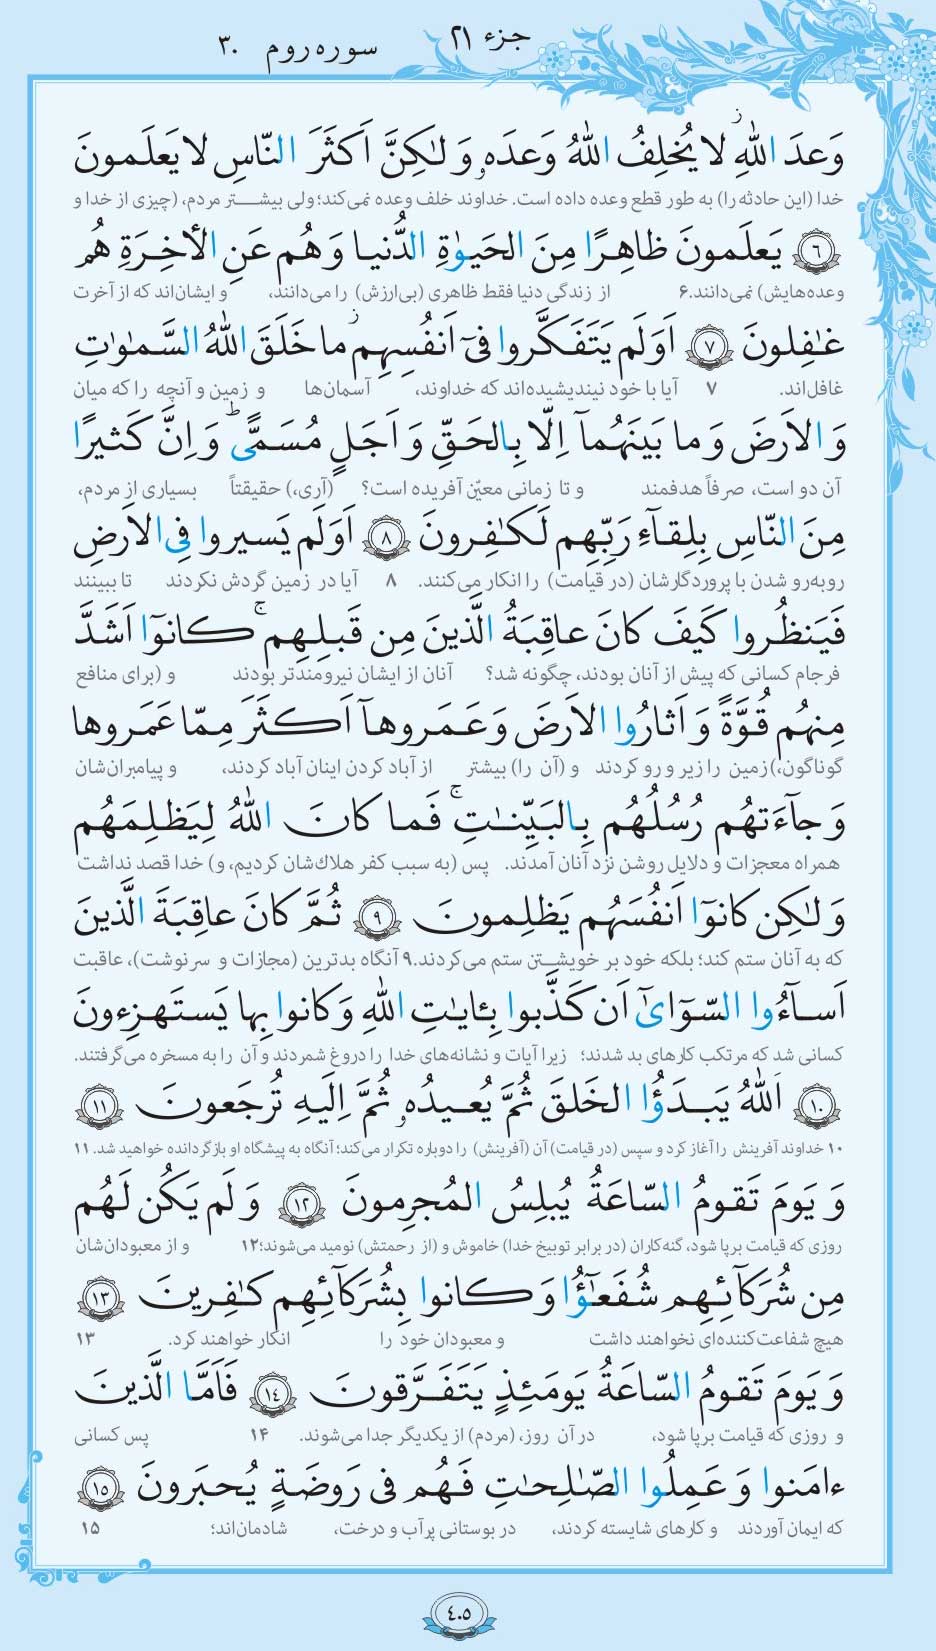 جزء ۲۱
سوره روم ۳۰
وَعدَ اللّٰهِ ۖ لا يُخلِفُ اللّٰهُ وَعدَهٗ وَ لٰكِنَّ اَكثَرَ النّاسِ لا يَعلَمونَ
خدا (این حادثه را) به طور قطع وعده داده است. خداوند خلف وعده نمی‌کند؛ ولی بیشتر مردم، (چیزی از خدا و
﴿٦﴾ يَعلَمونَ ظاهِرًا مِنَ الحَيوٰةِ الدُّنيا وَ هُم عَنِ الأخِرَةِ هُم
وعده‌هایش) نمی‌دانند.۶ از زندگی دنیا فقط ظاهری (بی‌ارزش) را می‌دانند، و ایشان‌اند که از آخرت
غٰفِلونَ ﴿٧﴾ اَوَلَم يَتَفَكَّروا فىٓ اَنفُسِهِم ۗ ما خَلَقَ اللّٰهُ السَّمٰوٰتِ
غافل‌اند. ۷ آیا با خود نیندیشیده‌اند که خداوند، آسمان‌ها و زمین و آنچه را که میان
وَ الاَرضَ وَ ما بَينَهُمآ اِلّا بِالحَقِّ وَ اَجَلٍ مُسَمًّى ۗ وَ اِنَّ كَثيرًا
آن دو است، صرفاً هدفمند و تا زمانی معیّن آفریده است؟ (آری،) حقیقتاً بسیاری از مردم،
مِنَ النّاسِ بِلِقآءِ رَبِّهِم لَكٰفِرونَ ﴿٨﴾ اَوَلَم يَسيروا فِى الاَرضِ
روبه‌رو شدن با پروردگارشان (در قیامت) را انکار می‌کنند. ۸ آیا در زمین گردش نکردند تا ببینند
فَيَنظُروا كَيفَ كانَ عاقِبَةُ الَّذينَ مِن قَبلِهِم ۚ كانوٓا اَشَدَّ
فرجام کسانی که پیش از آنان بودند، چگونه شد؟ آنان از ایشان نیرومندتر بودند و (برای منافع
مِنهُم قُوَّةً وَ اَثارُوا الاَرضَ وَ عَمَروهآ اَكثَرَ مِمّا عَمَروها
گوناگون،)زمین را زیر و رو کردند و (آن را) بیشتر از آباد کردن اینان آباد کردند، و پیامبران‌شان
وَ جآءَتهُم رُسُلُهُم بِالبَيِّنٰتِ ۚ فَما كانَ اللّٰهُ لِيَظلِمَهُم
همراه معجزات و دلایل روشن نزد آنان آمدند. پس (به سبب کفر هلاك‌شان کردیم، و) خدا قصد نداشت
وَ لٰكِن كانوٓا اَنفُسَهُم يَظلِمونَ ﴿٩﴾ ثُمَّ كانَ عاقِبَةَ الَّذينَ
که به آنان ستم کند؛ بلکه خود بر خویشتن ستم می‌کردند.۹ آنگاه بدترین (مجازات و سرنوشت)، عاقبت
اَسآءُوا السّوأىٰٓ اَن كَذَّبوا بِـٔايٰتِ اللّٰهِ وَ كانوا بِها يَستَهزِءونَ
کسانی شد که مرتکب کارهای بد شدند؛ زیرا آیات و نشانه‌های خدا را دروغ شمردند و آن را به مسخره می‌گرفتند.
﴿١٠﴾ اَللّٰهُ يَبدَؤُا الخَلقَ ثُمَّ يُعيدُهٗ ثُمَّ اِلَيهِ تُرجَعونَ ﴿١١﴾
۱۰ خداوند آفرینش را آغاز کرد و سپس (در قیامت) آن (آفرینش) را دوباره تکرار می‌کند؛ آنگاه به پیشگاه او بازگردانده خواهید شد. ۱۱
وَ يَومَ تَقومُ السّاعَةُ يُبلِسُ المُجرِمونَ ﴿١٢﴾ وَ لَم يَكُن لَهُم
روزی که قیامت برپا شود، گنه‌کاران (در برابر توبیخ خدا) خاموش و (از رحمتش) نومید می‌شوند؛۱۲ و از معبودان‌شان
مِن شُرَكآئِهِم شُفَعٰٓؤُا وَ كانوا بِشُرَكآئِهِم كٰفِرينَ ﴿١٣﴾
هیچ شفاعت‌کننده‌ای نخواهند داشت و معبودان خود را انکار خواهند کرد. ۱۳
وَ يَومَ تَقومُ السّاعَةُ يَومَئِذٍ يَتَفَرَّقونَ ﴿١٤﴾ فَاَمَّا الَّذينَ
و روزی که قیامت برپا شود، در آن روز، (مردم) از یکدیگر جدا می‌شوند. ۱۴ پس کسانی
ءامَنوا وَ عَمِلُوا الصّٰلِحٰتِ فَهُم فى رَوضَةٍ يُحبَرونَ ﴿١٥﴾
که ایمان آوردند و کارهای شایسته کردند، در بوستانی پرآب و درخت، شادمان‌اند؛ ۱۵
٤٠٥